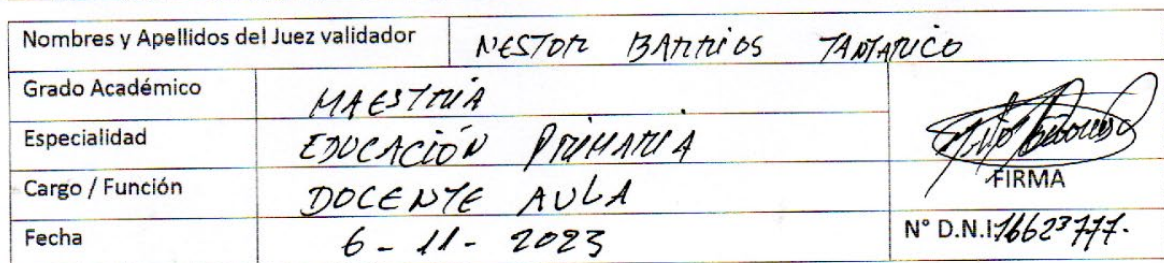 Nombres y Apellidos del Juez validador NESTOR BARRIOS TANTARICO
Grado Académico MAESTRÍA
Especialidad EDUCACIÓN PRIMARIA
Cargo / Función DOCENTE AULA
FIRMA
Fecha 6 - 11 - 2023
N° D.N.I. 16623777.